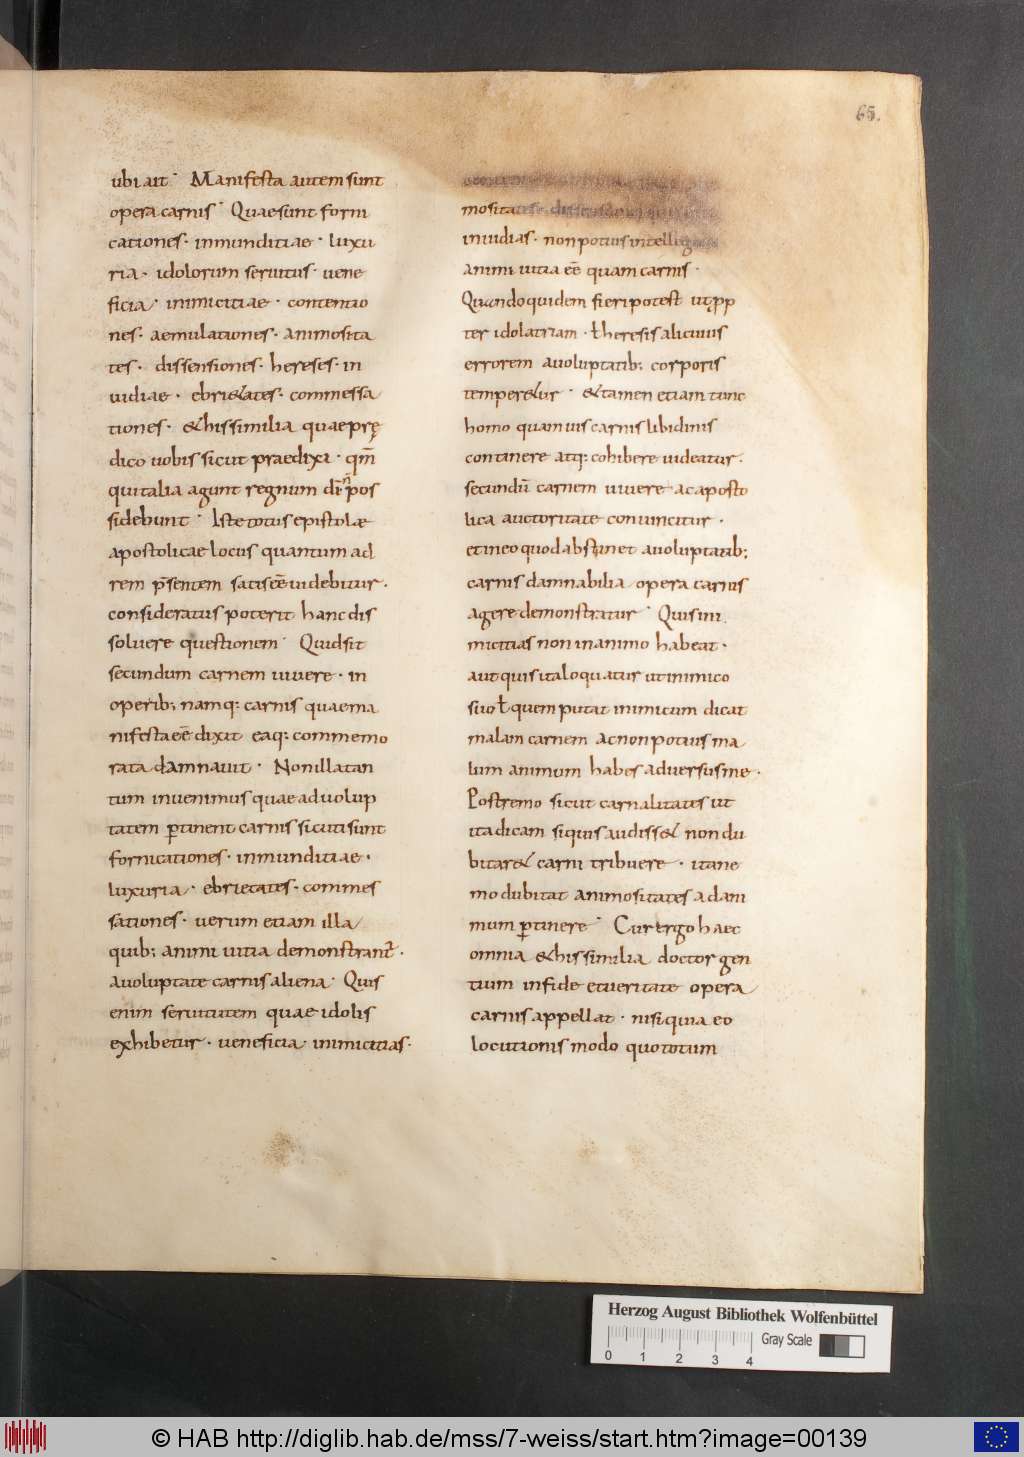 65.
ubi ait · Manifesta autem sunt
opera carnis · Quae sunt forni
cationes · inmunditiae · luxu
ria · idolorum seruitus · uene
ficia · inimicitiae · contentio
nes · aemulationes · animosita
tes · dissensiones · hereses · in
uidiae · ebrietates · commessa
tiones · & his similia quae prę
dico uobis sicut praedixi · qm̄
qui talia agunt regnum dī ǹ pos
sidebunt · Iste totus epistolae
apostolicae locus quantum ad
rem p̄sentem satis eē uidebitur ·
consideratus poterit hanc dis
soluere questionem · Quid sit
secundum carnem uiuere · in
operib; namq: carnis quae ma
nifesta eē dixit eaq: commemo
rata damnauit · Non illa tan
tum inuenimus quae ad uolup
tatem ꝑtinent carnis sicuti sunt
fornicationes · inmunditiae ·
luxuria · ebrietates · commes
sationes · uerum etiam illa
quib; animi uitia demonstrant̄ ·
a uoluptate carnis aliena · Quis
enim seruitutem quae idolis
exhibetur · ueneficia · inimicitias ·
mositates
inuidias · non potius intellegat
animi uitia eē quam carnis ·
Quandoquidem fieri potest ut ꝓp
ter idolatriam · ł heresis alicuius
errorem a uoluptatib; corporis
temper&ur · &tamen etiam tunc
homo quamuis carnis libidinis
continere atq: cohibere uideatur ·
secundū carnem uiuere ac aposto
lica auctoritate conuincitur ·
et in eo quod abstinet a uoluptatib;
carnis damnabilia opera carnis
agere demonstratur · Quis ini
micitias non in animo habeat ·
aut quis ita loquatur ut inimico
suo ł quem putat inimicum dicat
malam carnem ac non potius ma
lum animum habes aduersus me ·
Postremo sicut carnalitates ut
ita dicam si quis audiss& non du
bitar& carni tribuere · ita ne
mo dubitat animositates ad ani
mum ꝑtinere · Cur ergo haec
omnia & his similia doctor gen
tium in fide et ueritate opera
carnis appellat · nisi quia eo
locutionis modo quo totum
Herzog August Bibliothek Wolfenbüttel
Gray Scale
0 1 2 3 4
© HAB http://diglib.hab.de/mss/7-weiss/start.htm?image=00139